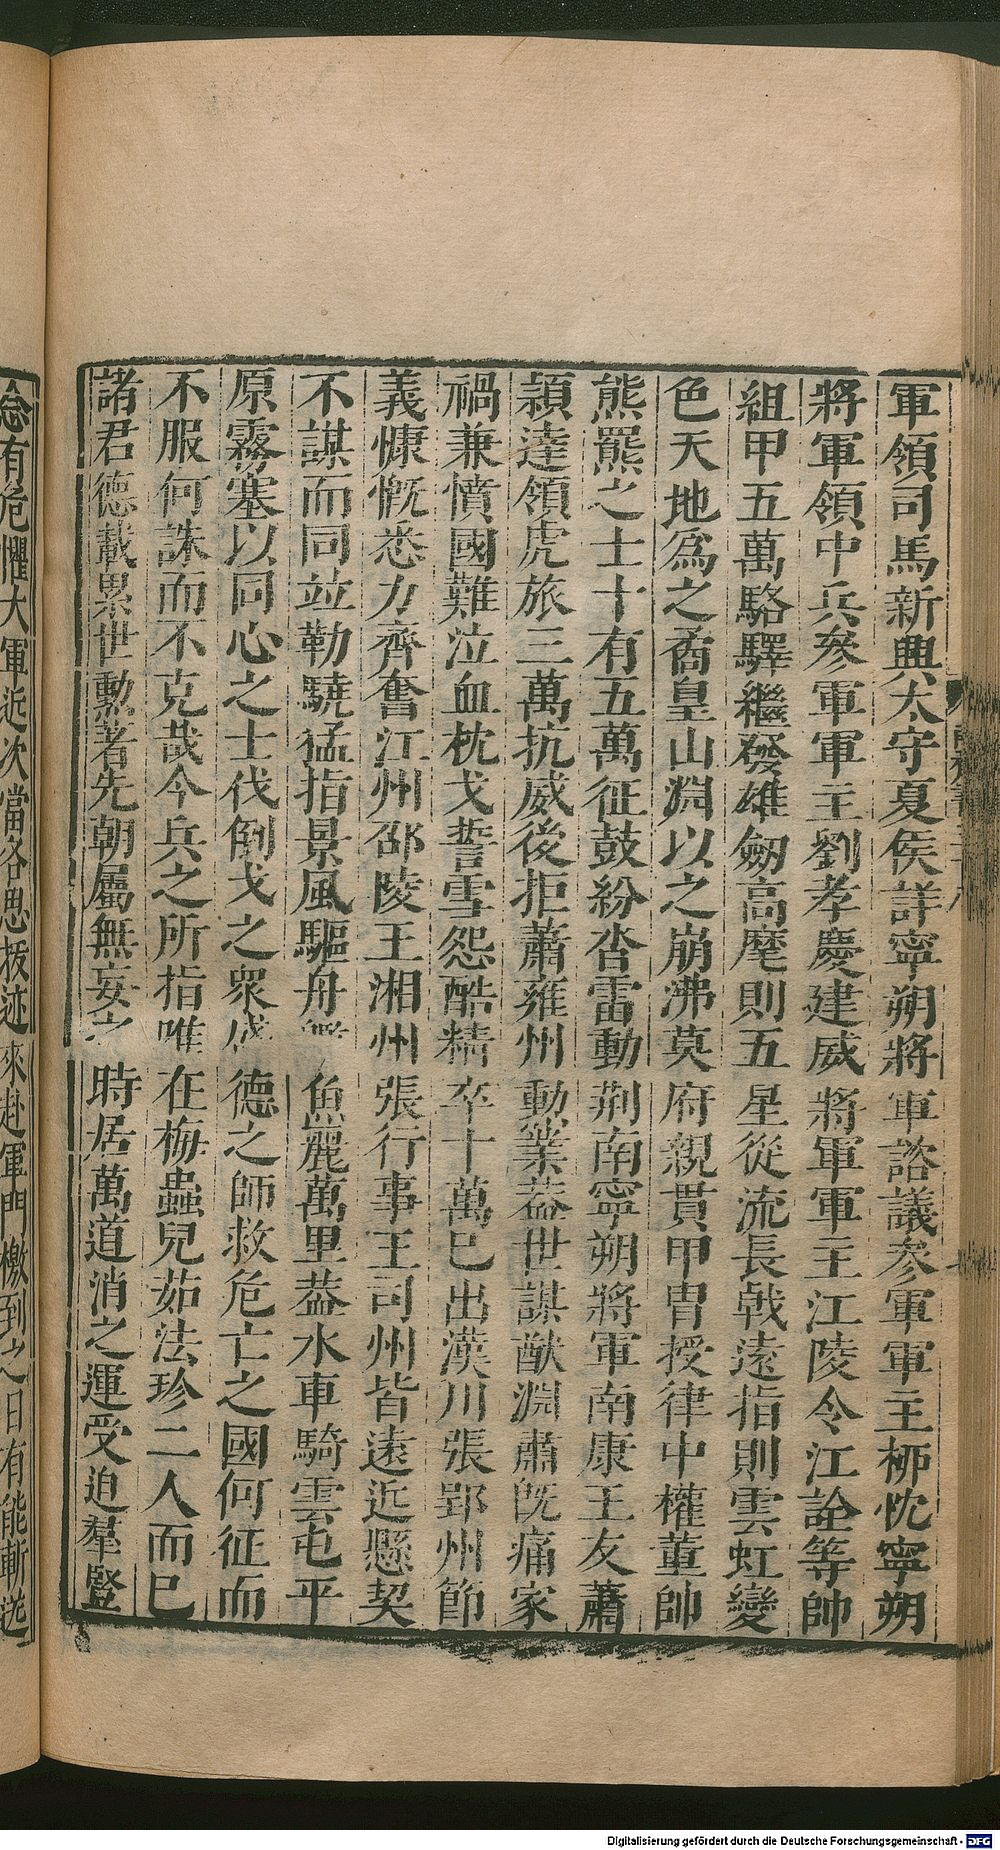 軍領司馬新興太守夏侯詳寧朔將軍諮議參軍軍主柳忱寧朔
將軍領中兵參軍軍主劉孝慶建威將軍軍主江陵令江詮等帥
組甲五萬駱驛繼發雄劒高麾則五星從流長戟遠指則雲虹變
色天地爲之矞皇山淵以之崩沸莫府親貫甲冑授律中權董帥
熊羆之士十有五萬征鼓紛沓雷動荆南寧朔將軍南康王友蕭
頴達領虎旅三萬抗威後拒蕭雍州勳業葢世謀猷淵肅旣痛家
禍兼憤國難泣血枕戈誓雪怨酷精卒十萬已出漢川張郢州節
義慷慨悉力齊奮江州邵陵王湘州張行事王司州皆遠近懸契
不謀而同並勒驍猛指景風驅舟魚麗萬里葢水車騎雲屯平
原霧塞以同心之士伐倒戈之衆德之師救危亡之國何征而
不服何誅而不克哉今兵之所指唯在梅蟲兒茹法珍二人而已
諸君德載累世勳著先朝屬無妄之時居萬道消之運受迫羣竪
念有危懼大軍近次當各思拔迹來赴軍門檄到之日有能斬送
Digitalisierung gefördert durch die Deutsche Forschungsgemeinschaft - DFG